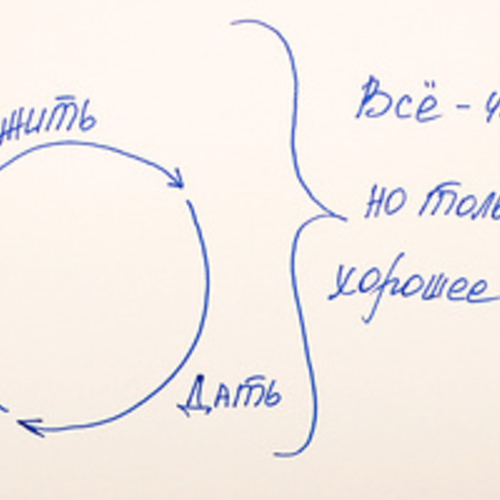 жить
Дать
Всё - 
но
хорошее